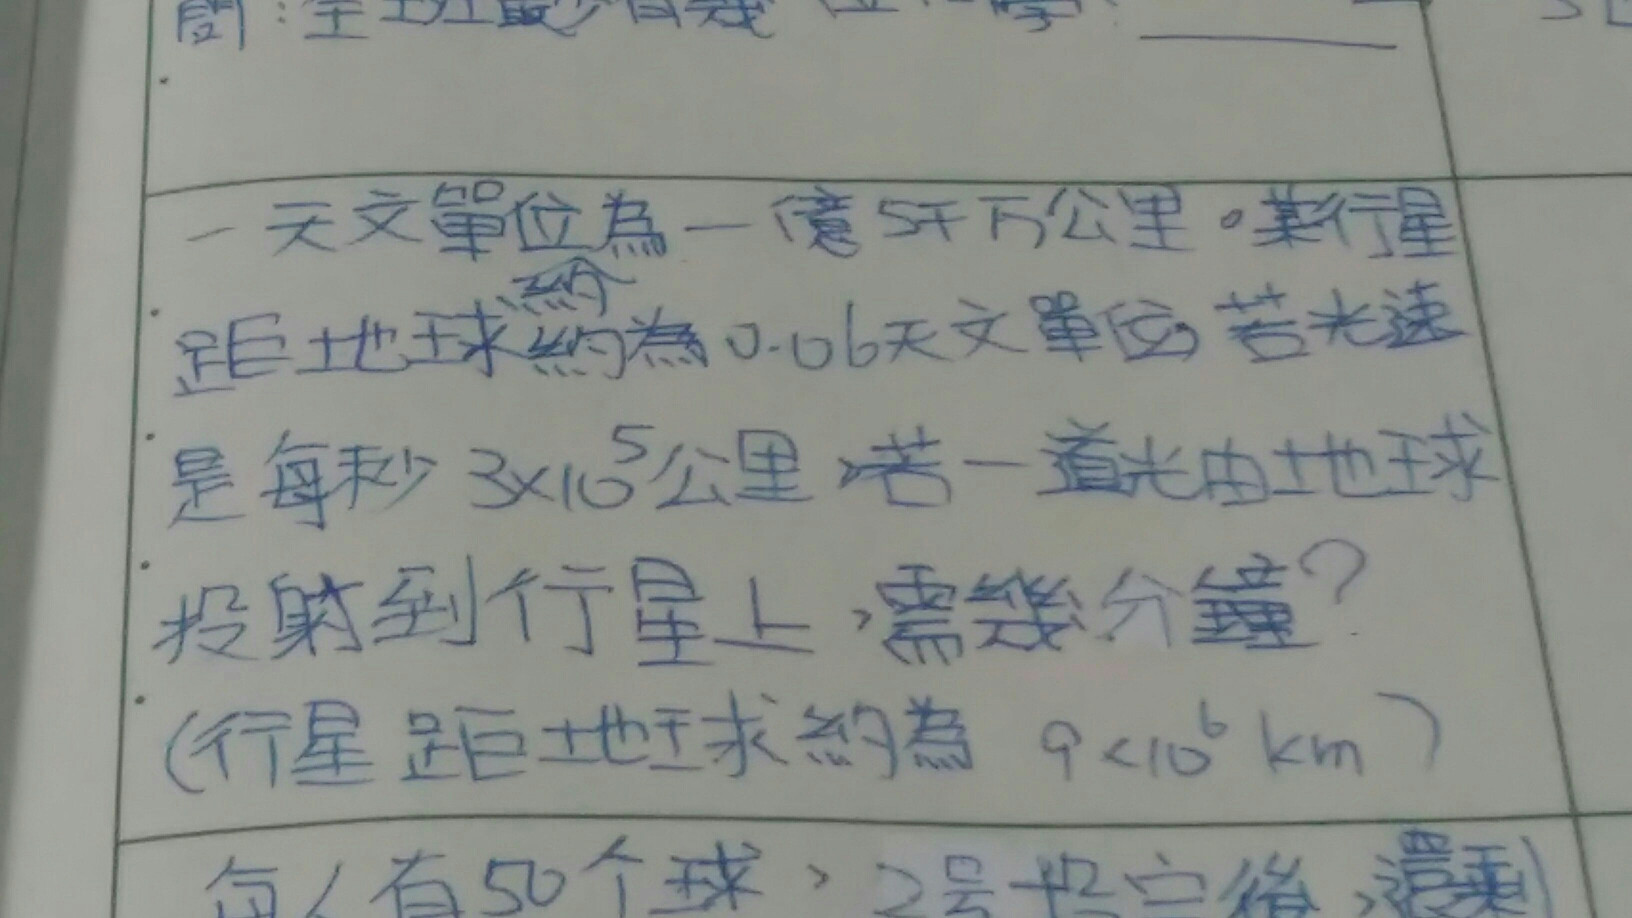 問:全班最少有幾位同學?
一天文單位為一億5千万公里。某行星
約
距地球約為0.06天文單位,若光速
是每秒3×10⁵公里,若一道光由地球
投射到行星上,需幾分鐘?
(行星距地球約為 9×10⁶ km)
每人有50个球,2号投完後,還剩